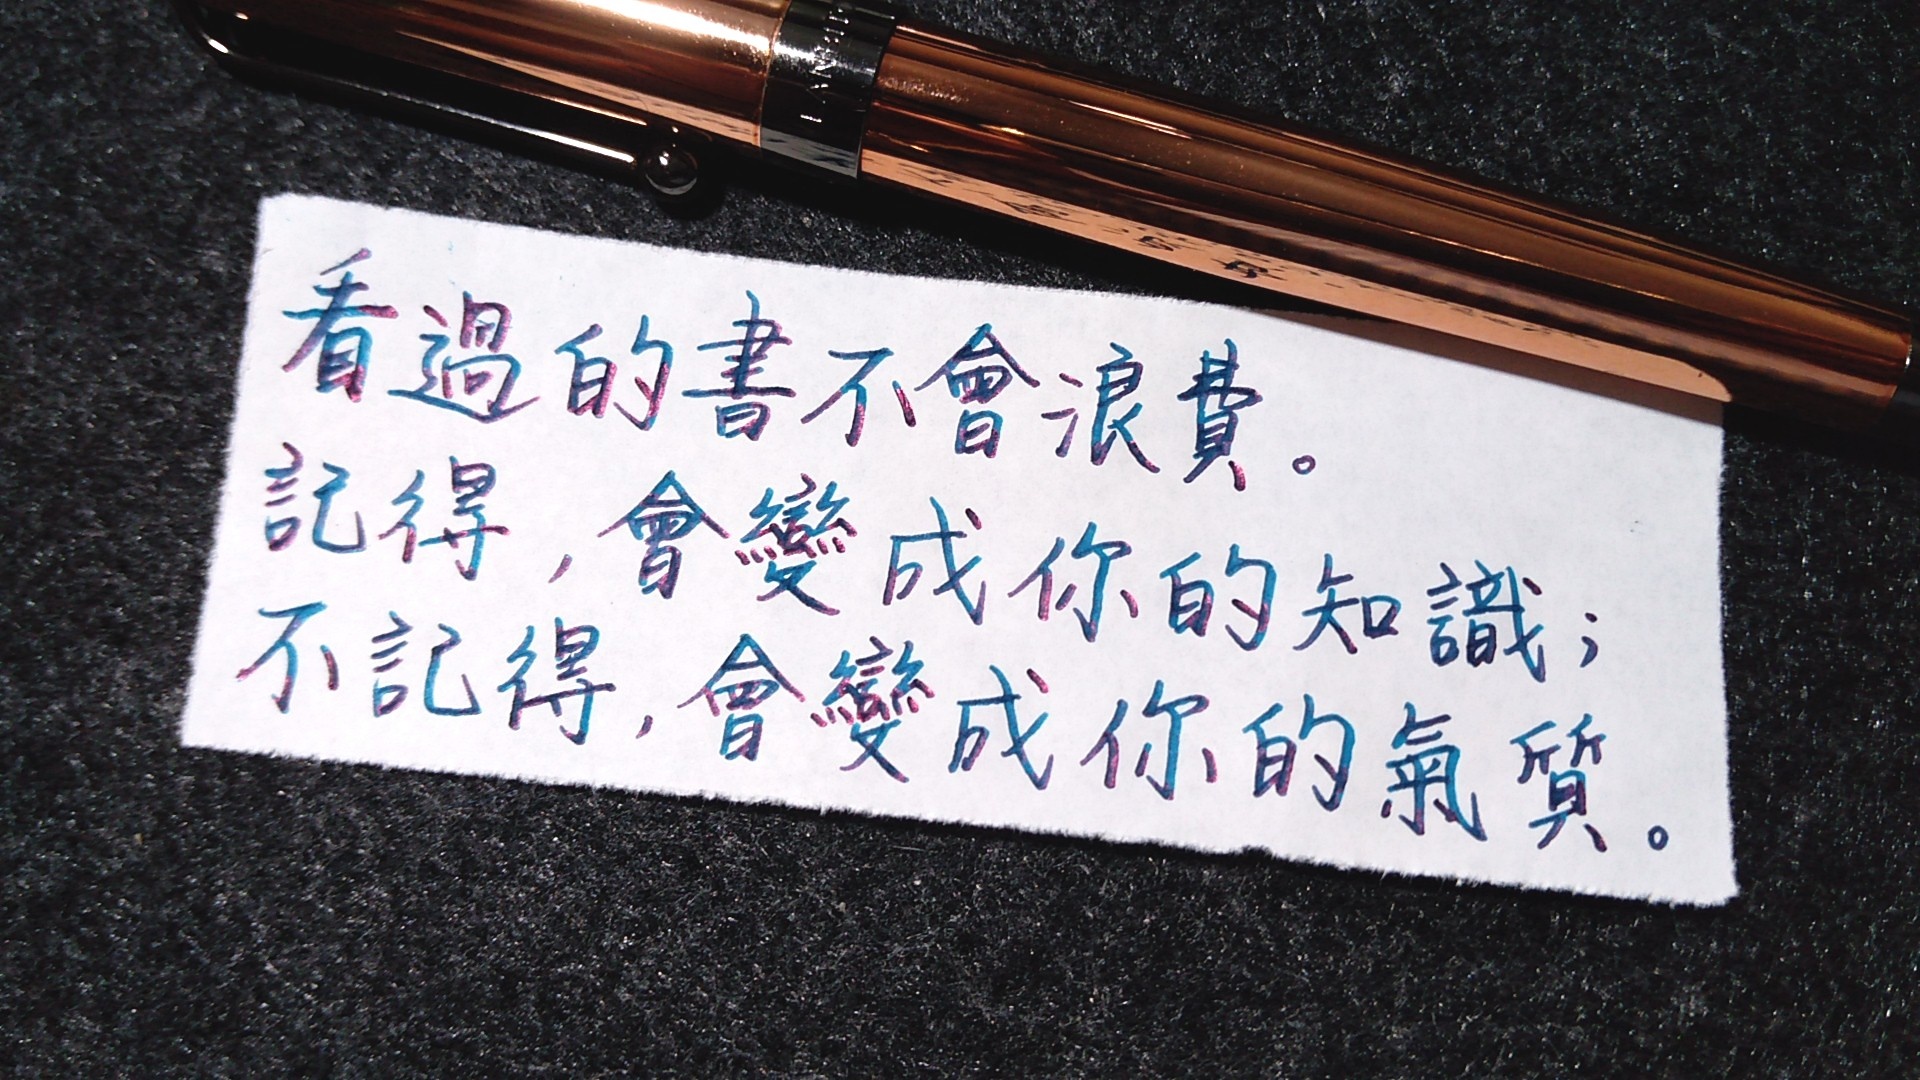 看過的書不會浪費。
記得，會變成你的知識；
不記得，會變成你的氣質。